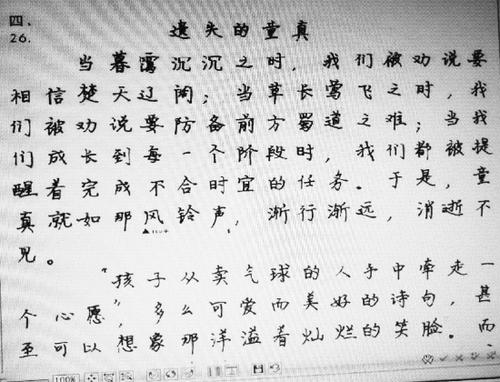 四、
26. 遗失的童真
当暮霭沉沉之时，我们被劝说要
相信楚天辽阔；当草长莺飞之时，我
们被劝说要防备前方蜀道之难；当我
们成长到每一个阶段时，我们都被提
醒着完成不合时宜的任务。于是，童
真就如那风铃声，渐行渐远，消逝不
见。
“孩子从卖气球的人手中牵走一
个心愿”，多么可爱而美好的诗句，甚
至可以想象那洋溢着灿烂的笑脸。而
100%